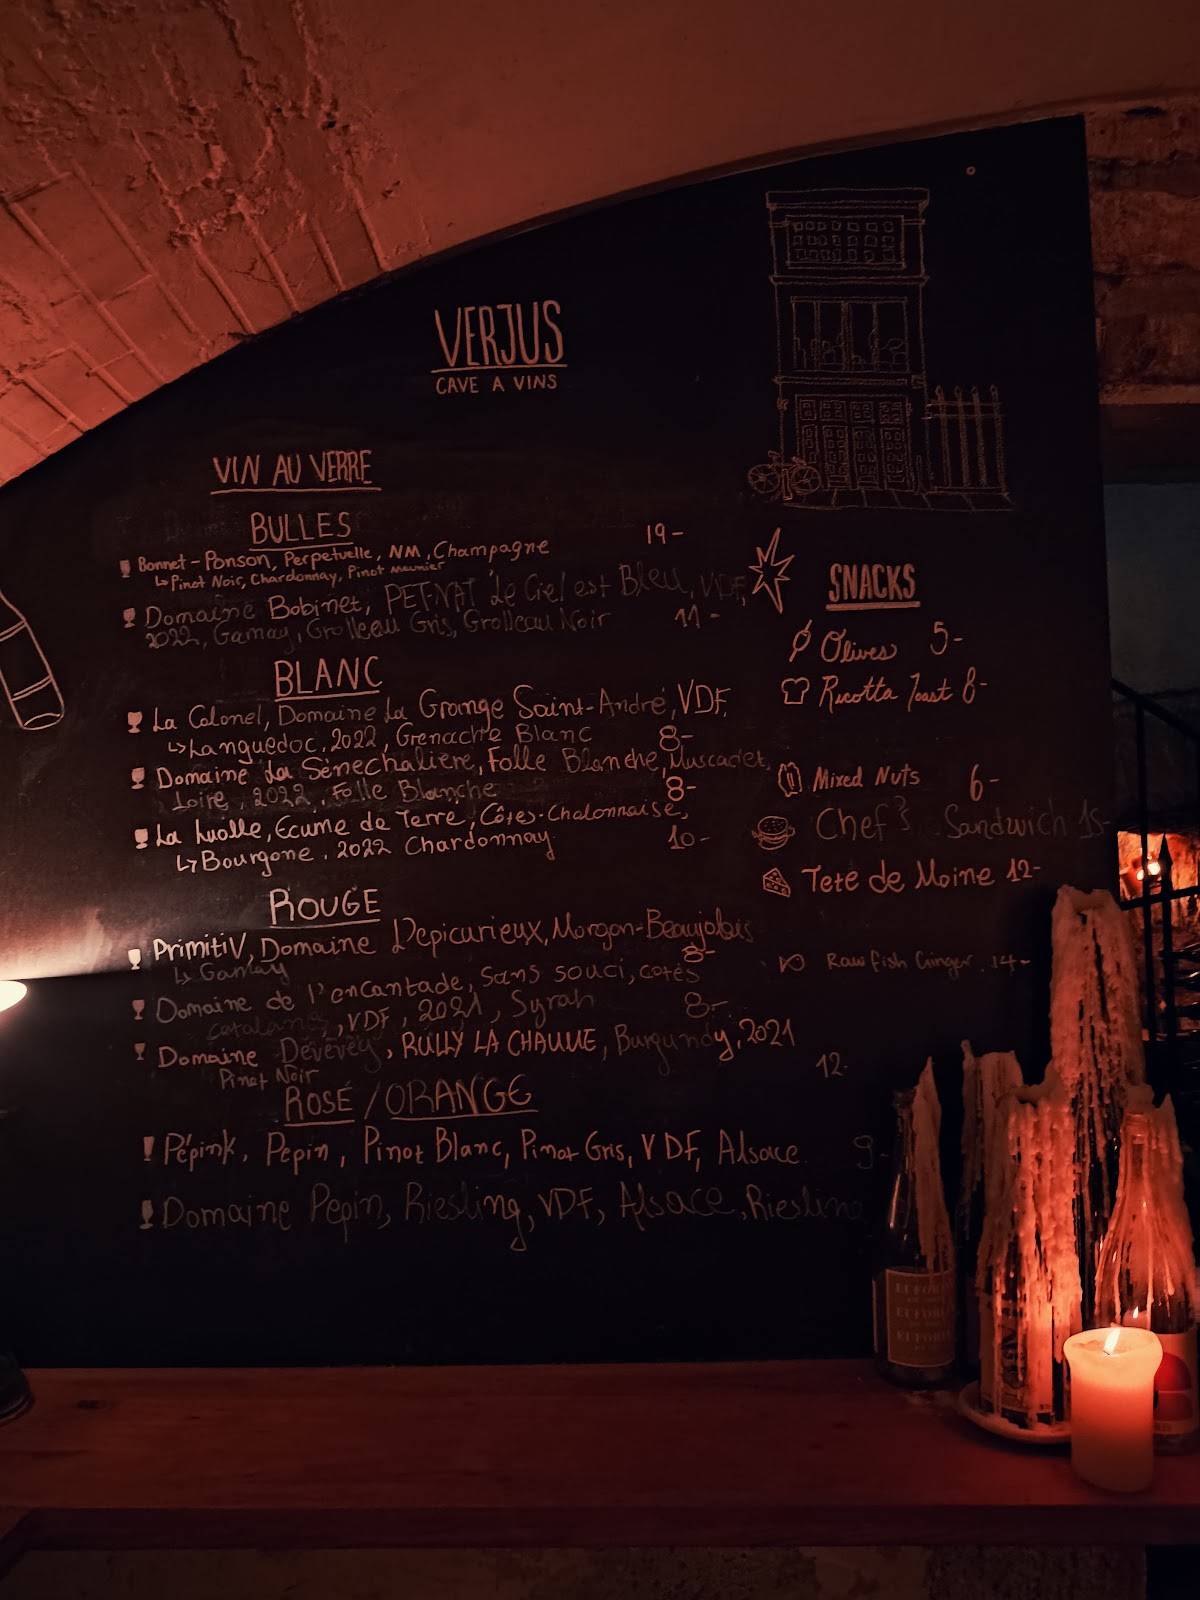 VERJUS
CAVE A VINS
VIN AU VERRE
BULLES
Bonnet-Ponson, Perpetuelle, NM, Champagne 19-
↳ Pinot Noir, Chardonnay, Pinot Meunier
Domaine Bobinet, PET-NAT Le Ciel est Bleu, VDF,
2022, Gamay, Grolleau Gris, Grolleau Noir 11-
BLANC
La Colonel, Domaine La Grange Saint-André, VDF,
↳ Languedoc, 2022, Grenache Blanc 8-
Domaine La Sénéchalière, Folle Blanche, Muscadet,
Loire, 2022, Folle Blanche 8-
La Luolle, Ecume de Terre, Côtes-Chalonnaise,
↳ Bourgone, 2022 Chardonnay 10-
ROUGE
PrimitiV, Domaine L'epicurieux, Morgon-Beaujolais
↳ Gamay 8-
Domaine de l'encantade, Sans souci, cotés
catalanes, VDF, 2021, Syrah 8-
Domaine Devevey, RULLY LA CHAUME, Burgundy, 2021
Pinot Noir 12-
ROSÉ / ORANGE
Pépink, Pepin, Pinot Blanc, Pinot Gris, VDF, Alsace 9-
Domaine Pepin, Riesling, VDF, Alsace, Riesling
SNACKS
Olives 5-
Ricotta Toast 8-
Mixed Nuts 6-
Chef's Sandwich 15-
Tete de Moine 12-
Raw fish Ginger 14-
EUFORIA
EUFORIA